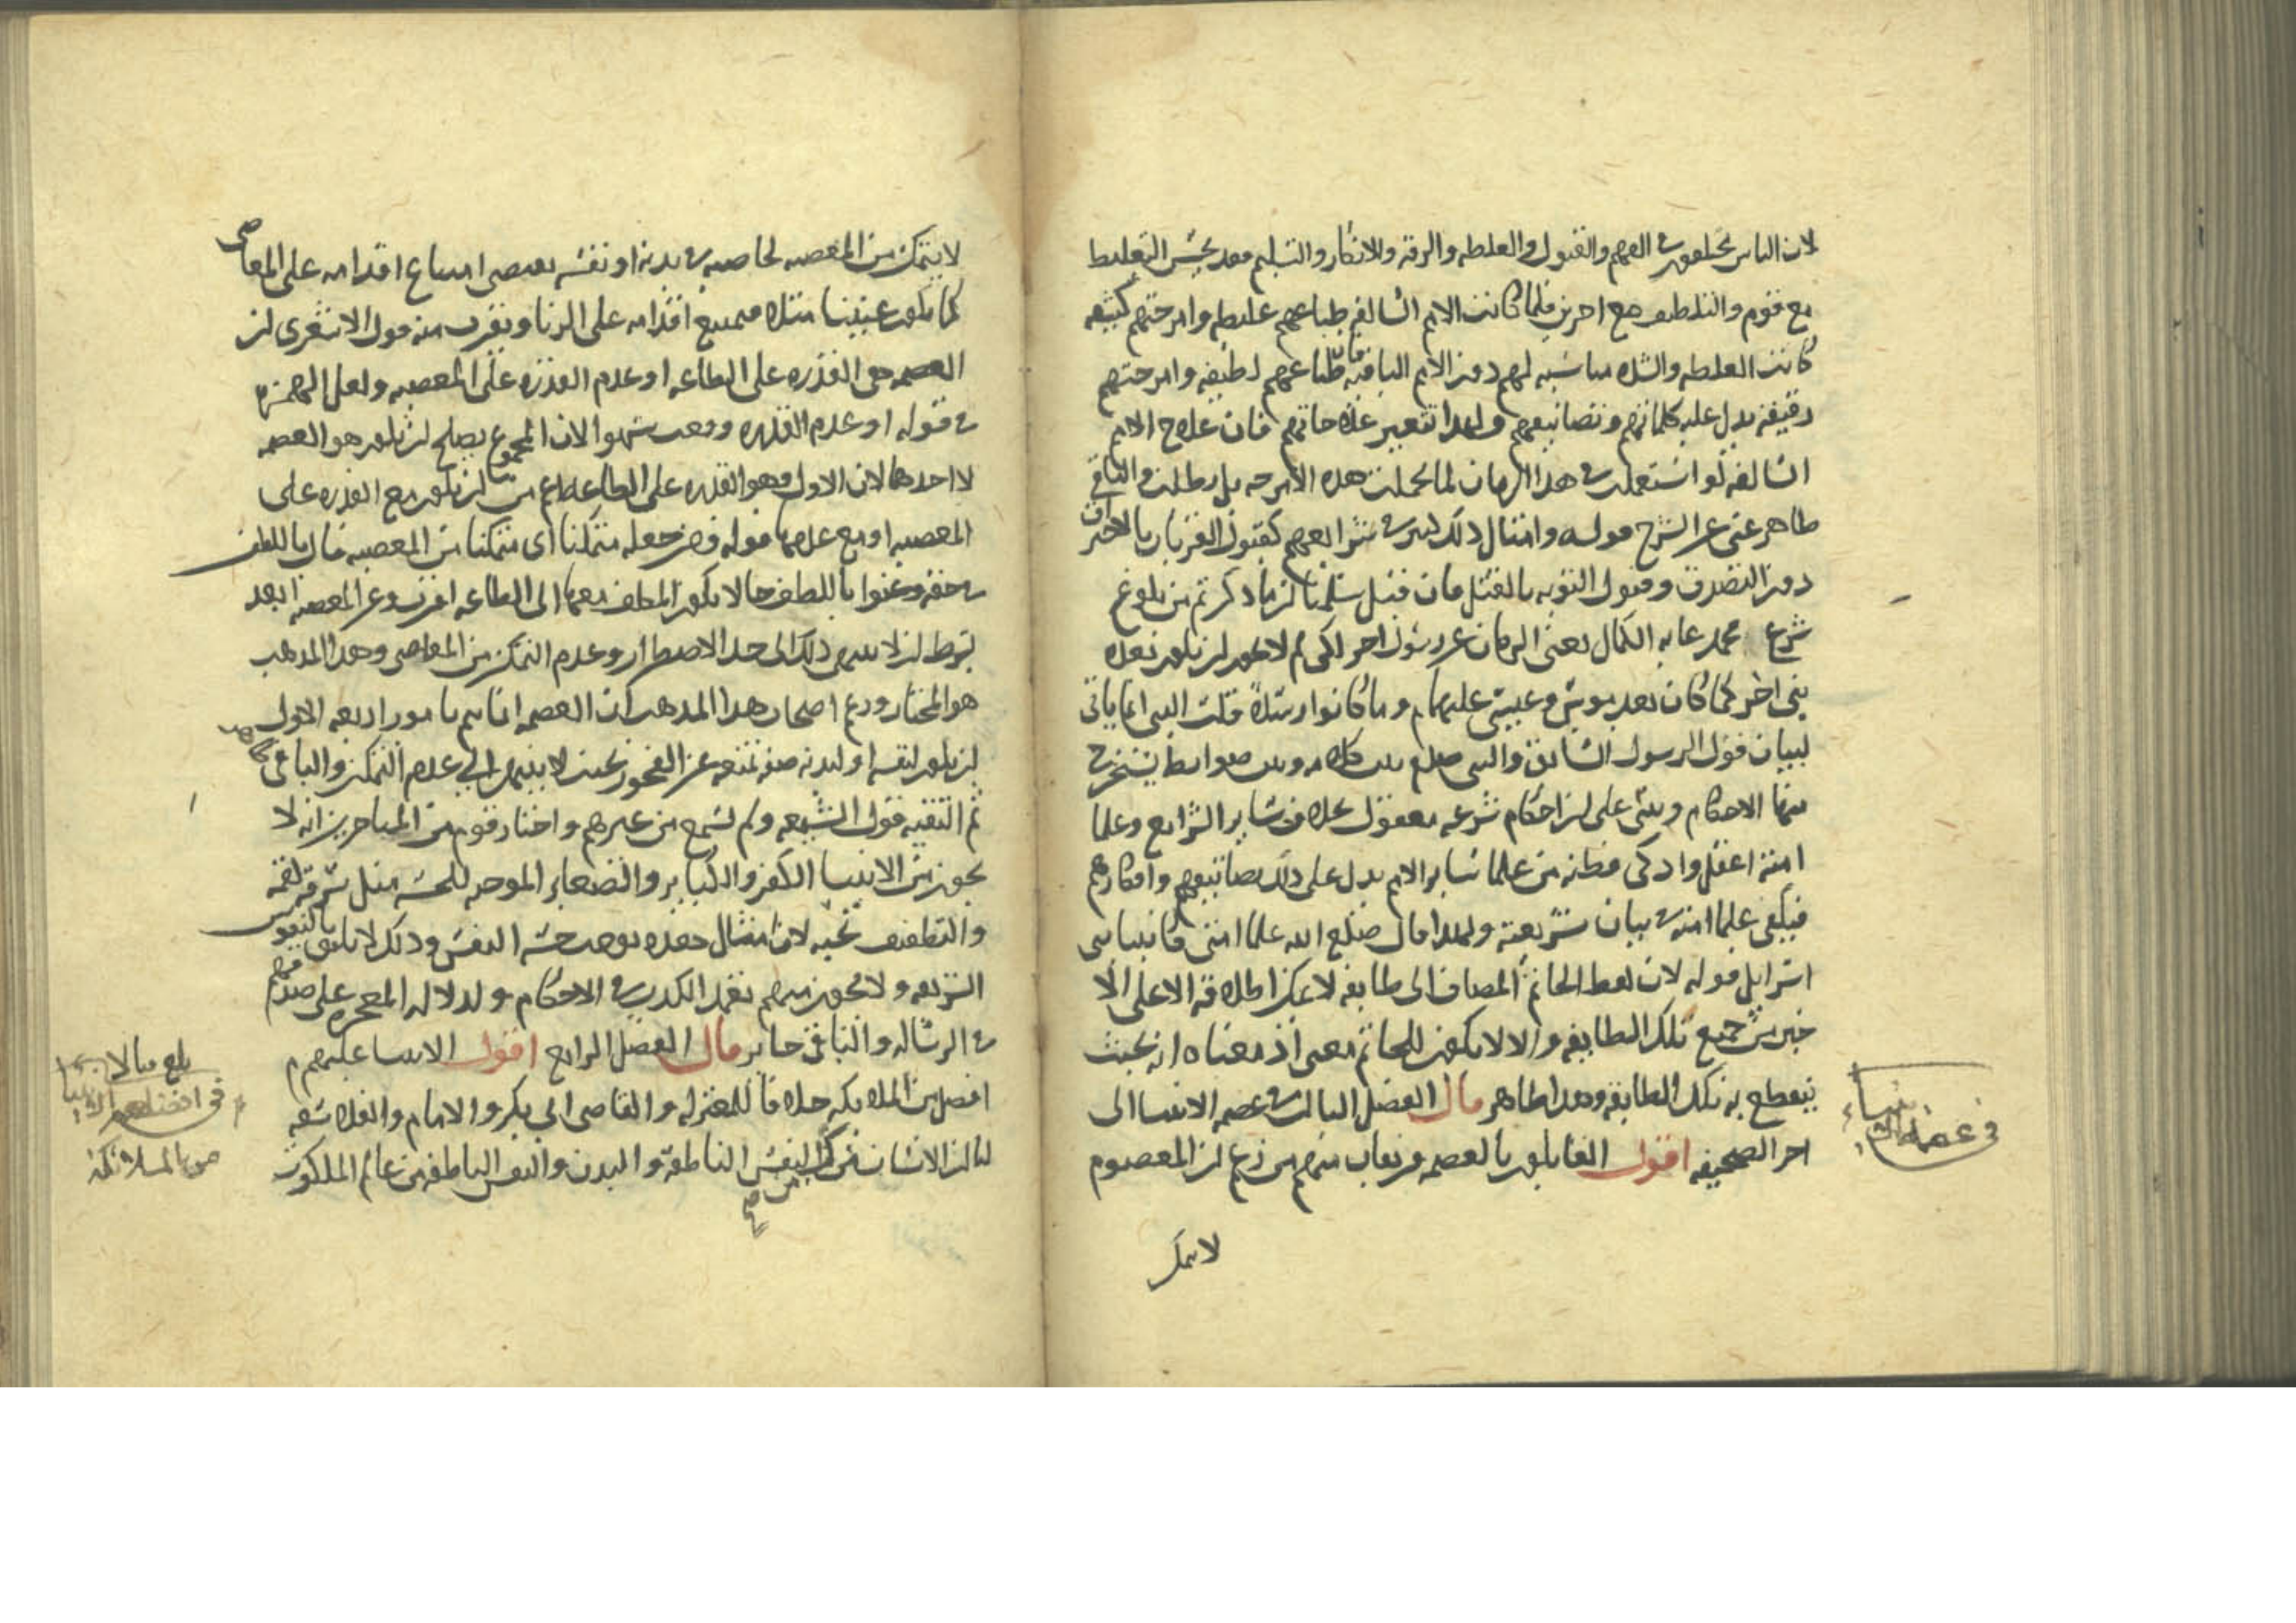 لان الناس يختلفون فى الفهم والقبول والغلظه والرقه والانكار والتسليم فقد يحسن التغليظ
مع قوم والتلطيف مع اخرين فلما كانت الامم السالفه طباعهم غليظه وامزجتهم كثيفه
كانت الغلظه والشده مناسبه لهم دون الامم الباقيه فان طباعهم لطيفه وامزجتهم
دقيقه يدل عليه كلماتهم وتصانيفهم ولهذا تتغير علاجاتهم فان علاج الامم
السالفه لو استعملت فى هذا الزمان لما تحملت هذه الامزجه بل بطلت والباقى
ظاهر غنى عن الشرح قوله وامثال ذلك كثيره فى شرايعهم كقبول القربان بالاحتراق
دون التصدق وقبول التوبه بالقتل فان قيل سلمنا ان ما ذكرتم من بلوغ
شرع محمد غايه الكمال يغنى الزمان عن رسول اخر لكن لم لا يجوز ان يكون بعده
نبى اخر كما كان بعد موسى وعيسى عليهما م وما كانوا رسلا قلت النبى انما ياتى
لبيان قول الرسول السابق والنبى صلعم بين كلامه وبين ضوابط يستخرج
منها الاحكام وبنى على ان احكام شرعه معقول بخلاف ساير الشرايع وعلما
امته اعقل واذكى فطنه من علما ساير الامم يدل على ذلك تصانيفهم وافكارهم
فيكفى علما امته فى بيان شريعته ولهذا قال صلعم الله علما امتى كانبيا بنى
اسرايل قوله لان لفظ الخاتم المضاف الى طايفه لا يمكن اطلاقه الا على الا
خير من جميع تلك الطايفه والا لا يكون للخاتم معنى اذ معناه انه بحيث
ينقطع به تلك الطايفه وهذا ظاهر قال الفصل الثالث فى عصمه الانبيا الى
اخر الصحيفه اقول القايلون بالعصمه فرقتان منهم من زعم ان المعصوم
لا يتمكن
فى عصمة الانبياء
لا يتمكن من المعصيه لخاصيه فى بدنه او نفسه يقتضى امتناع اقدامه على المعاصى
كما يكون عنينا مثلا فيمتنع اقدامه على الزنا ويقرب منه قول الاشعرى ان
العصمه هى القدره على الطاعه او عدم القدره على المعصيه ولعل الهمزه
فى قوله او عدم القدره وقعت سهوا لان المجموع يصلح ان يكون هو العصمه
لا احدهما لان الاول وهو القدره على الطاعه اعم من ان يكون مع القدره على
المعصيه او مع عدمها قوله ومن جعله متمكنا اى متمكنا من المعصيه قال باللطف
فى حقه وعنوا باللطف حالا يكون المكلف معها الى الطاعه اقرب وعن المعصيه ابعد
بشرط ان لا ينتهى ذلك الى حد الاضطرار وعدم التمكن من المعاصى وهذا المذهب
هو المختار وزعم اصحاب هذا المذهب ان العصمه انما يتم بامور اربعه الاول
ان يكون لنفسه او لبدنه صفه تمنعه عن الفجور بحيث لا ينتهى الى عدم التمكن والباقى
ثم التقيه قول الشيعه ولم تسمع من غيرهم واختار قوم من المتاخرين انه لا
يجوز من الانبيا الكفر والكباير والصغاير الموجبه للخسه مثل سرقه لقمه
والتطفيف بحبه لان امثال هذه توجب خسه النفس وذلك لا يليق بالنفوس
الشريفه ولا يجوز منهم تعمد الكذب فى الاحكام ولدلاله المعجزه على صدقهم
فى الرساله والباقى جايز قال الفصل الرابع اقول الانبيا عليهم م
افضل من الملايكه خلافا للمعتزله والقاضى ابى بكر والامام والفلاسفه
لنا ان الانسان مركب من النفس الناطقه والبدن والنفس الناطقه من عالم الملكوت
صح
فى افضلية الانبيا
من الملائكة